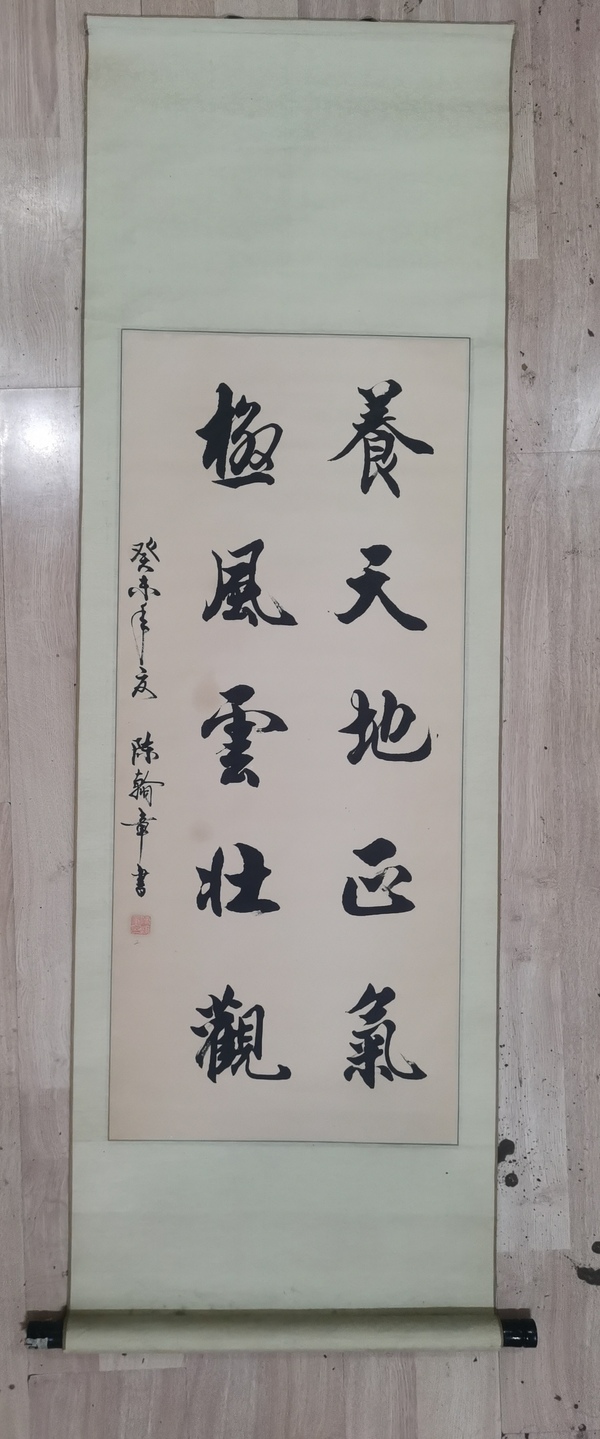 養天地正氣
極風雲壯觀
癸未年夏 陳翰章書